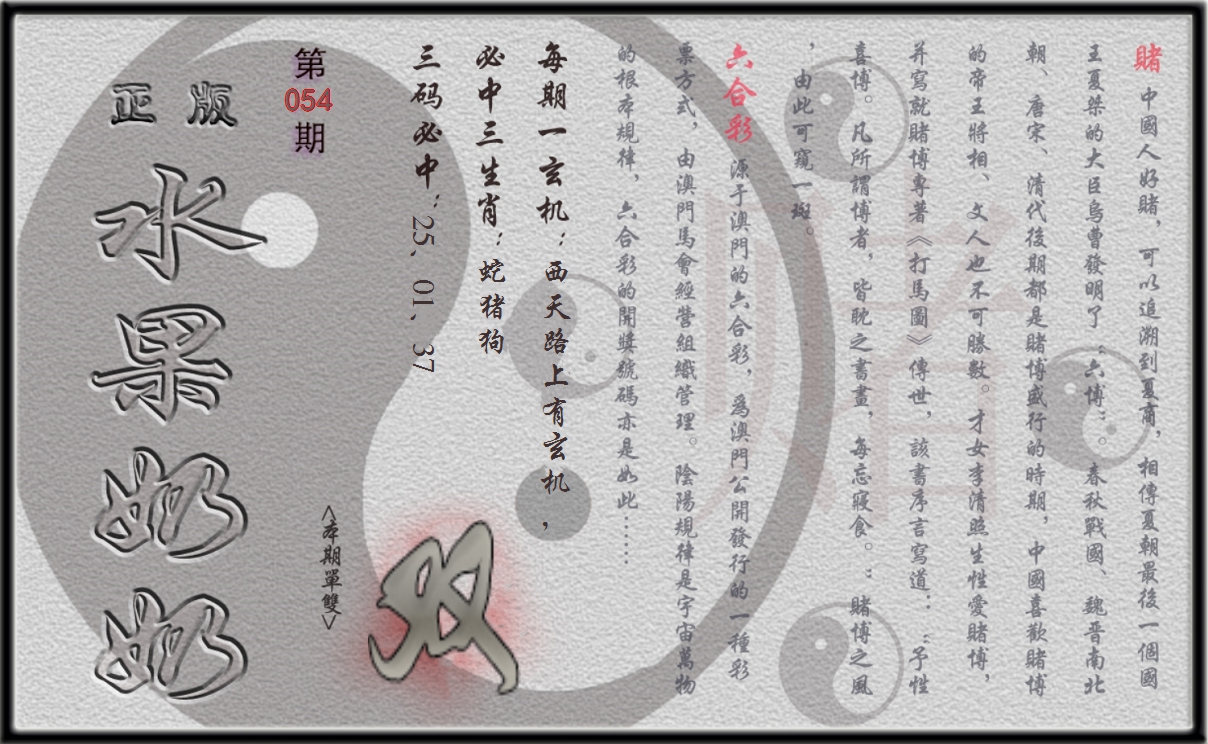 賭 中國人好賭，可以追溯到夏商，相傳夏朝最後一個國
王夏桀的大臣烏曹發明了“六博”。春秋戰國、魏晉南北
朝、唐宋、清代後期都是賭博盛行的時期，中國喜歡賭博
的帝王將相、文人也不可勝數。才女李清照生性愛賭博，
并寫就賭博專著《打馬圖》傳世，該書序言寫道：“予性
喜博。凡所謂博者，皆耽之書畫，每忘寢食。：賭博之風
，由此可窺一斑。
六合彩 源于澳門的六合彩，爲澳門公開發行的一種彩
票方式，由澳門馬會經營組織管理。陰陽規律是宇宙萬物
的根本規律，六合彩的開獎號碼亦是如此……
每期一玄机：西天路上有玄机，
必中三生肖：蛇猪狗
三码必中：25、01、37
第
054
期
<本期單雙>
双
正版
水果奶奶
赌